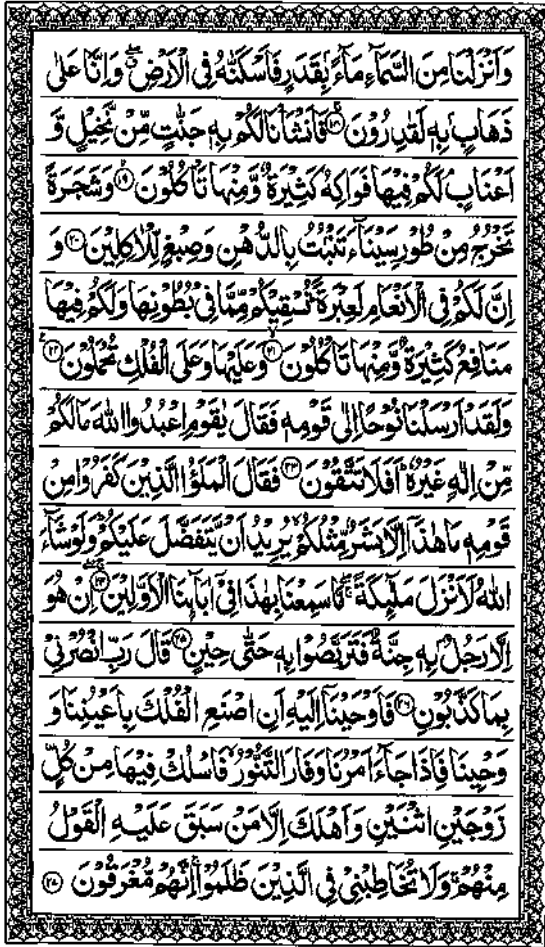 وَاَنْزَلْنَا مِنَ السَّمَآءِ مَآءًۢ بِقَدَرٍ فَاَسْكَنّٰهُ فِى الْاَرْضِ ۖ وَاِنَّا عَلٰى
ذَهَابٍۭ بِهٖ لَقٰدِرُوْنَ ۝١٨ فَاَنْشَاْنَا لَكُمْ بِهٖ جَنّٰتٍ مِّنْ نَّخِيْلٍ وَّ
اَعْنَابٍ لَكُمْ فِيْهَا فَوَاكِهُ كَثِيْرَةٌ وَّمِنْهَا تَاْكُلُوْنَ ۝١٩ وَشَجَرَةً
تَخْرُجُ مِنْ طُوْرِ سَيْنَآءَ تَنْۢبُتُ بِالدُّهْنِ وَصِبْغٍ لِّلْاٰكِلِيْنَ ۝٢٠ وَ
اِنَّ لَكُمْ فِى الْاَنْعَامِ لَعِبْرَةً نُسْقِيْكُمْ مِّمَّا فِيْ بُطُوْنِهَا وَلَكُمْ فِيْهَا
مَنَافِعُ كَثِيْرَةٌ وَّمِنْهَا تَاْكُلُوْنَ ۝٢١ وَعَلَيْهَا وَعَلَى الْفُلْكِ تُحْمَلُوْنَ ۝٢٢
وَلَقَدْ اَرْسَلْنَا نُوْحًا اِلٰى قَوْمِهٖ فَقَالَ يٰقَوْمِ اعْبُدُوا اللّٰهَ مَا لَكُمْ
مِّنْ اِلٰهٍ غَيْرُهٗ اَفَلَا تَتَّقُوْنَ ۝٢٣ فَقَالَ الْمَلَؤُا الَّذِيْنَ كَفَرُوْا مِنْ
قَوْمِهٖ مَا هٰذَا اِلَّا بَشَرٌ مِّثْلُكُمْ يُرِيْدُ اَنْ يَّتَفَضَّلَ عَلَيْكُمْ وَلَوْ شَآءَ
اللّٰهُ لَاَنْزَلَ مَلٰٓئِكَةً ۖ مَّا سَمِعْنَا بِهٰذَا فِيْٓ اٰبَآئِنَا الْاَوَّلِيْنَ ۝٢٤ اِنْ هُوَ
اِلَّا رَجُلٌۢ بِهٖ جِنَّةٌ فَتَرَبَّصُوْا بِهٖ حَتّٰى حِيْنٍ ۝٢٥ قَالَ رَبِّ انْصُرْنِيْ
بِمَا كَذَّبُوْنِ ۝٢٦ فَاَوْحَيْنَآ اِلَيْهِ اَنِ اصْنَعِ الْفُلْكَ بِاَعْيُنِنَا وَ
وَحْيِنَا فَاِذَا جَآءَ اَمْرُنَا وَفَارَ التَّنُّوْرُ فَاسْلُكْ فِيْهَا مِنْ كُلٍّ
زَوْجَيْنِ اثْنَيْنِ وَاَهْلَكَ اِلَّا مَنْ سَبَقَ عَلَيْهِ الْقَوْلُ
مِنْهُمْ ۚ وَلَا تُخَاطِبْنِيْ فِى الَّذِيْنَ ظَلَمُوْا ۚ اِنَّهُمْ مُّغْرَقُوْنَ ۝٢٧